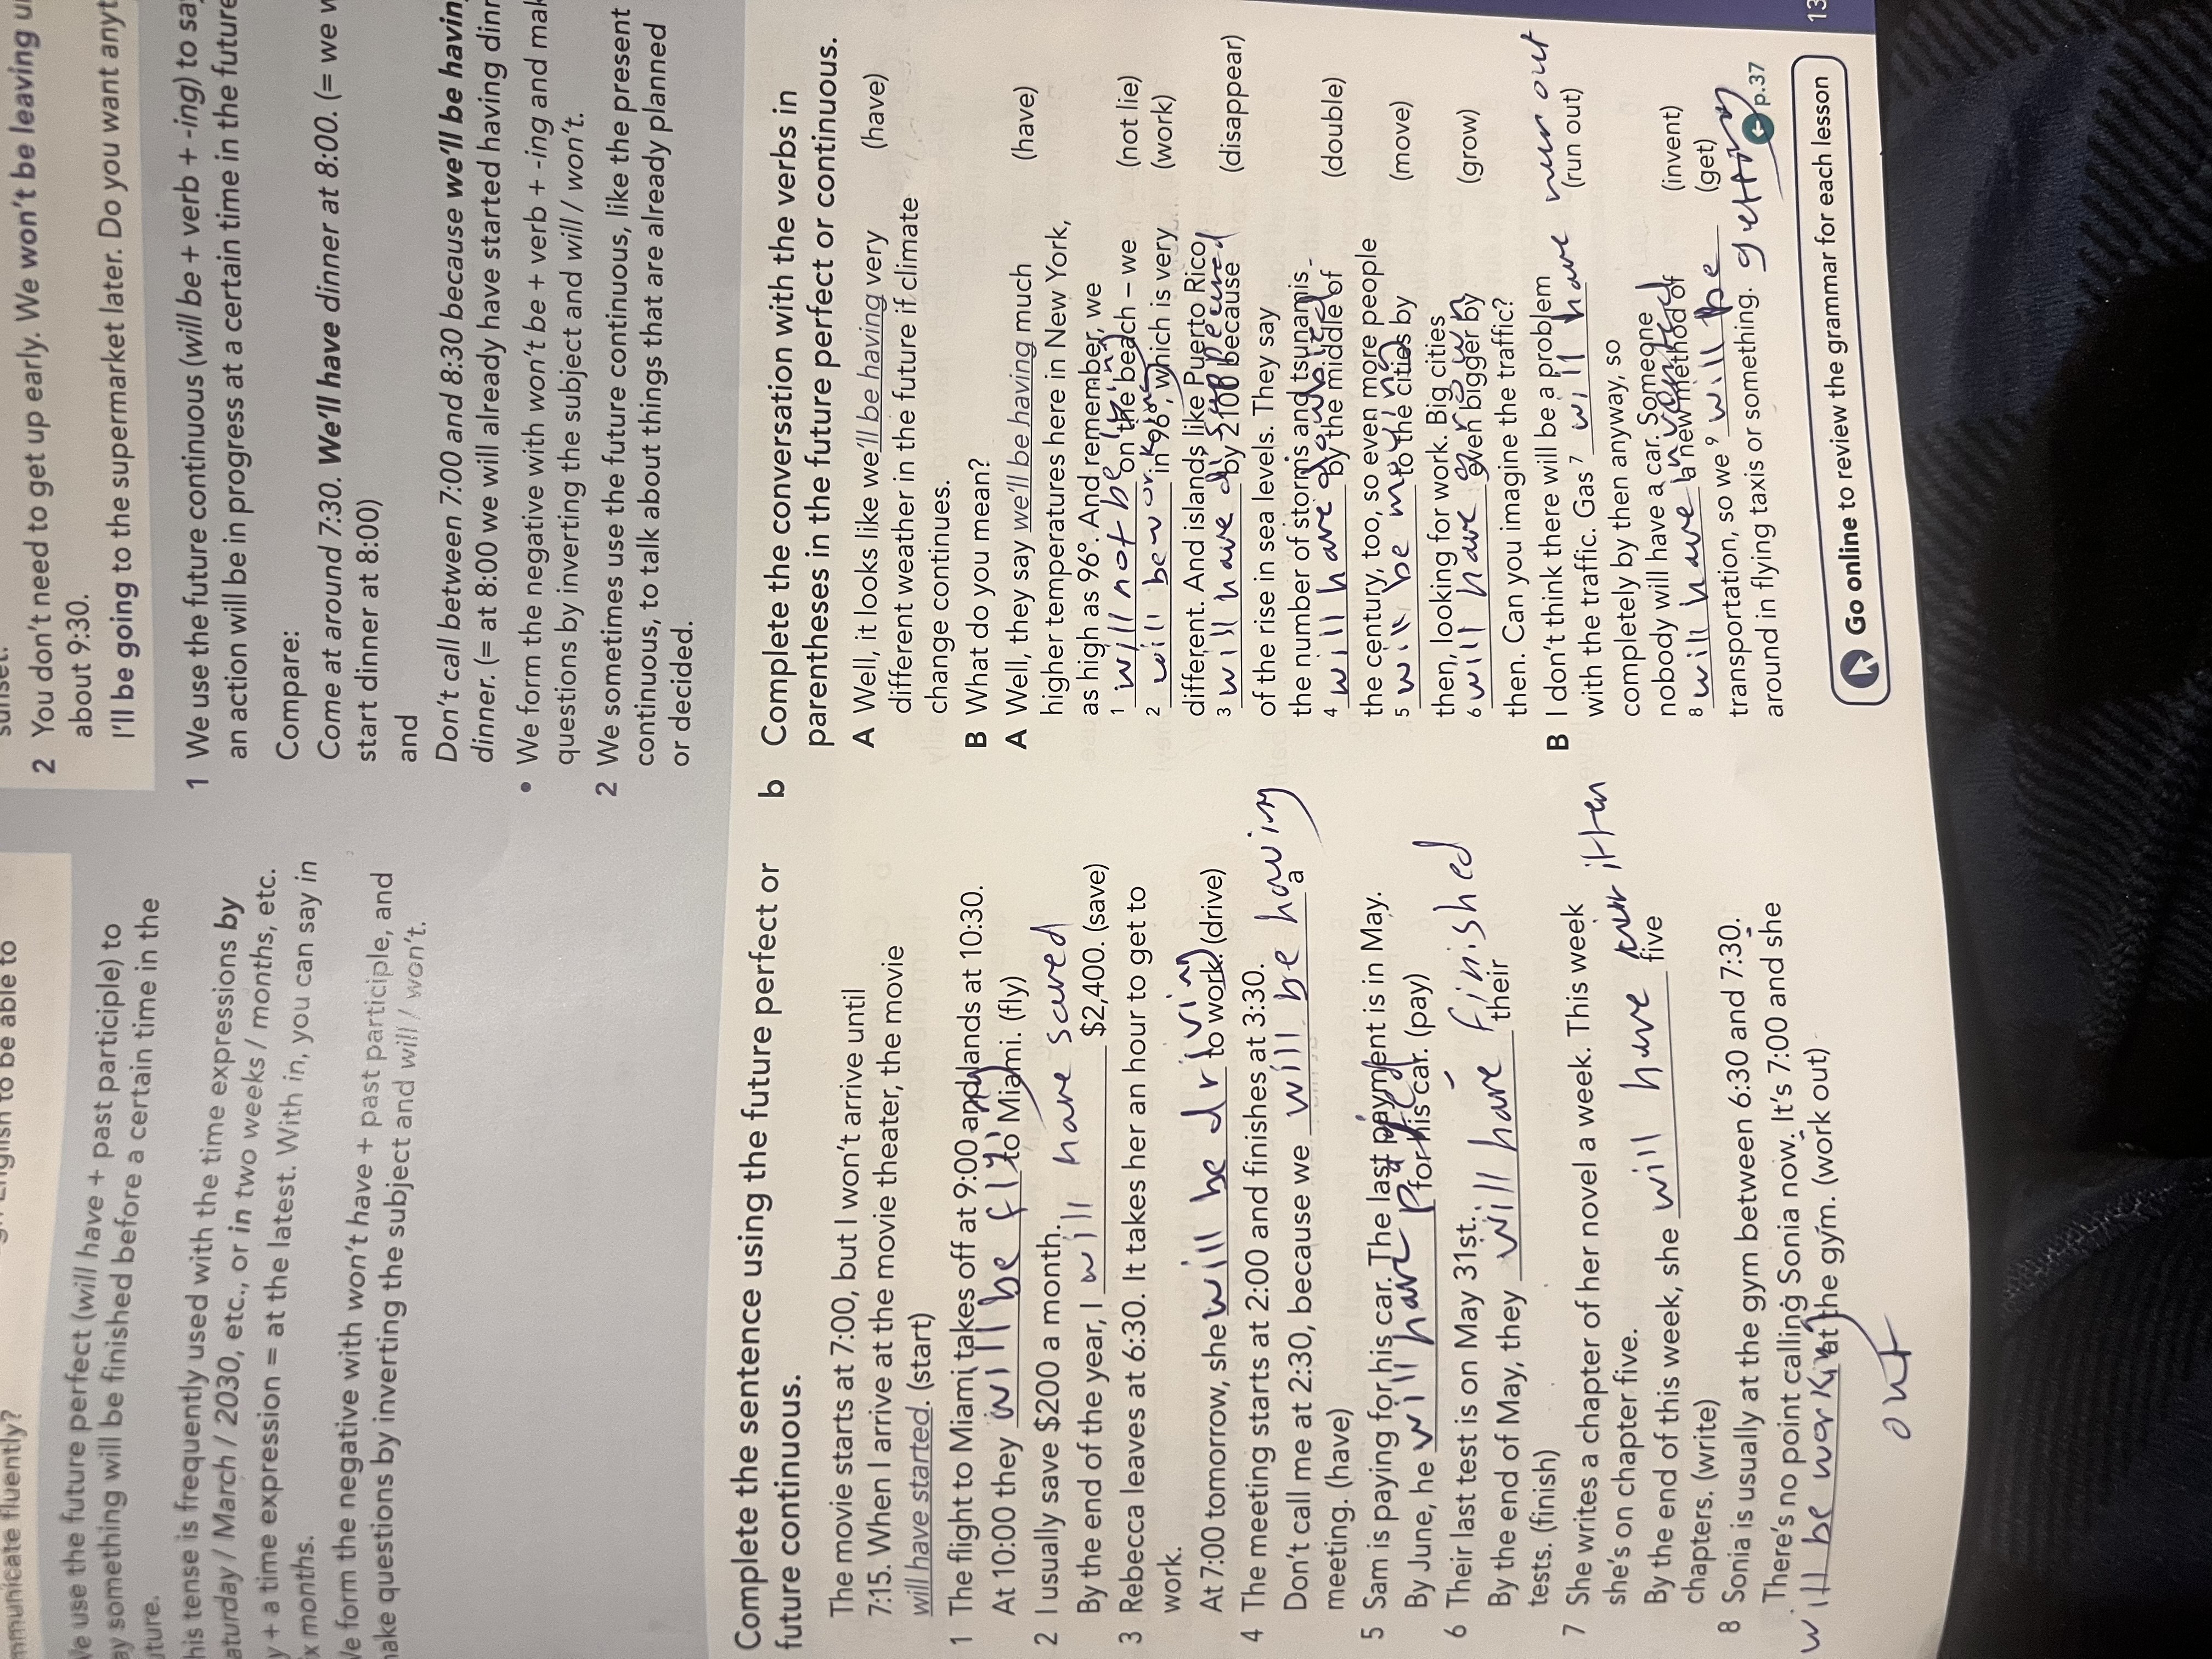 mmunicate fluently?
English to be able to
We use the future perfect (will have + past participle) to
ay something will be finished before a certain time in the
uture.
his tense is frequently used with the time expressions by
aturday / March / 2030, etc., or in two weeks / months, etc.
y + a time expression = at the latest. With in, you can say in
ix months.
We form the negative with won't have + past participle, and
make questions by inverting the subject and will / won't.
sunset.
2 You don't need to get up early. We won't be leaving u
about 9:30.
I'll be going to the supermarket later. Do you want anyt
1 We use the future continuous (will be + verb + -ing) to sa
an action will be in progress at a certain time in the future
Compare:
Come at around 7:30. We'll have dinner at 8:00. (= we w
start dinner at 8:00)
and
Don't call between 7:00 and 8:30 because we'll be havin
dinner. (= at 8:00 we will already have started having dinn
• We form the negative with won't be + verb + -ing and mak
questions by inverting the subject and will / won't.
2 We sometimes use the future continuous, like the present
continuous, to talk about things that are already planned
or decided.
Complete the sentence using the future perfect or
future continuous.
The movie starts at 7:00, but I won't arrive until
7:15. When I arrive at the movie theater, the movie
will have started. (start)
1 The flight to Miami takes off at 9:00 and lands at 10:30.
At 10:00 they will be flying to Miami. (fly)
2 I usually save $200 a month.
By the end of the year, I will have saved $2,400. (save)
3 Rebecca leaves at 6:30. It takes her an hour to get to
work.
At 7:00 tomorrow, she will be driving to work. (drive)
4 The meeting starts at 2:00 and finishes at 3:30.
Don't call me at 2:30, because we will be having a
meeting. (have)
5 Sam is paying for his car. The last payment is in May.
By June, he will have payed for his car. (pay)
6 Their last test is on May 31st.
By the end of May, they will have finished their
tests. (finish)
7 She writes a chapter of her novel a week. This week
she's on chapter five.
By the end of this week, she will have written five
chapters. (write)
8 Sonia is usually at the gym between 6:30 and 7:30.
There's no point calling Sonia now. It's 7:00 and she
will be working out at the gym. (work out)
b Complete the conversation with the verbs in
parentheses in the future perfect or continuous.
A Well, it looks like we'll be having very (have)
different weather in the future if climate
change continues.
B What do you mean?
A Well, they say we'll be having much (have)
higher temperatures here in New York,
as high as 96°. And remember, we
1 will not be lying on the beach – we (not lie)
2 will be working in 96°, which is very (work)
different. And islands like Puerto Rico
3 will have disappeared by 2100 because (disappear)
of the rise in sea levels. They say
the number of storms and tsunamis
4 will have doubled by the middle of (double)
the century, too, so even more people
5 will be moving to the cities by (move)
then, looking for work. Big cities
6 will have grown even bigger by (grow)
then. Can you imagine the traffic?
B I don't think there will be a problem
with the traffic. Gas 7 will have run out (run out)
completely by then anyway, so
nobody will have a car. Someone
8 will have invented a new method of (invent)
transportation, so we 9 will be getting (get)
around in flying taxis or something.
p.37
Go online to review the grammar for each lesson
13